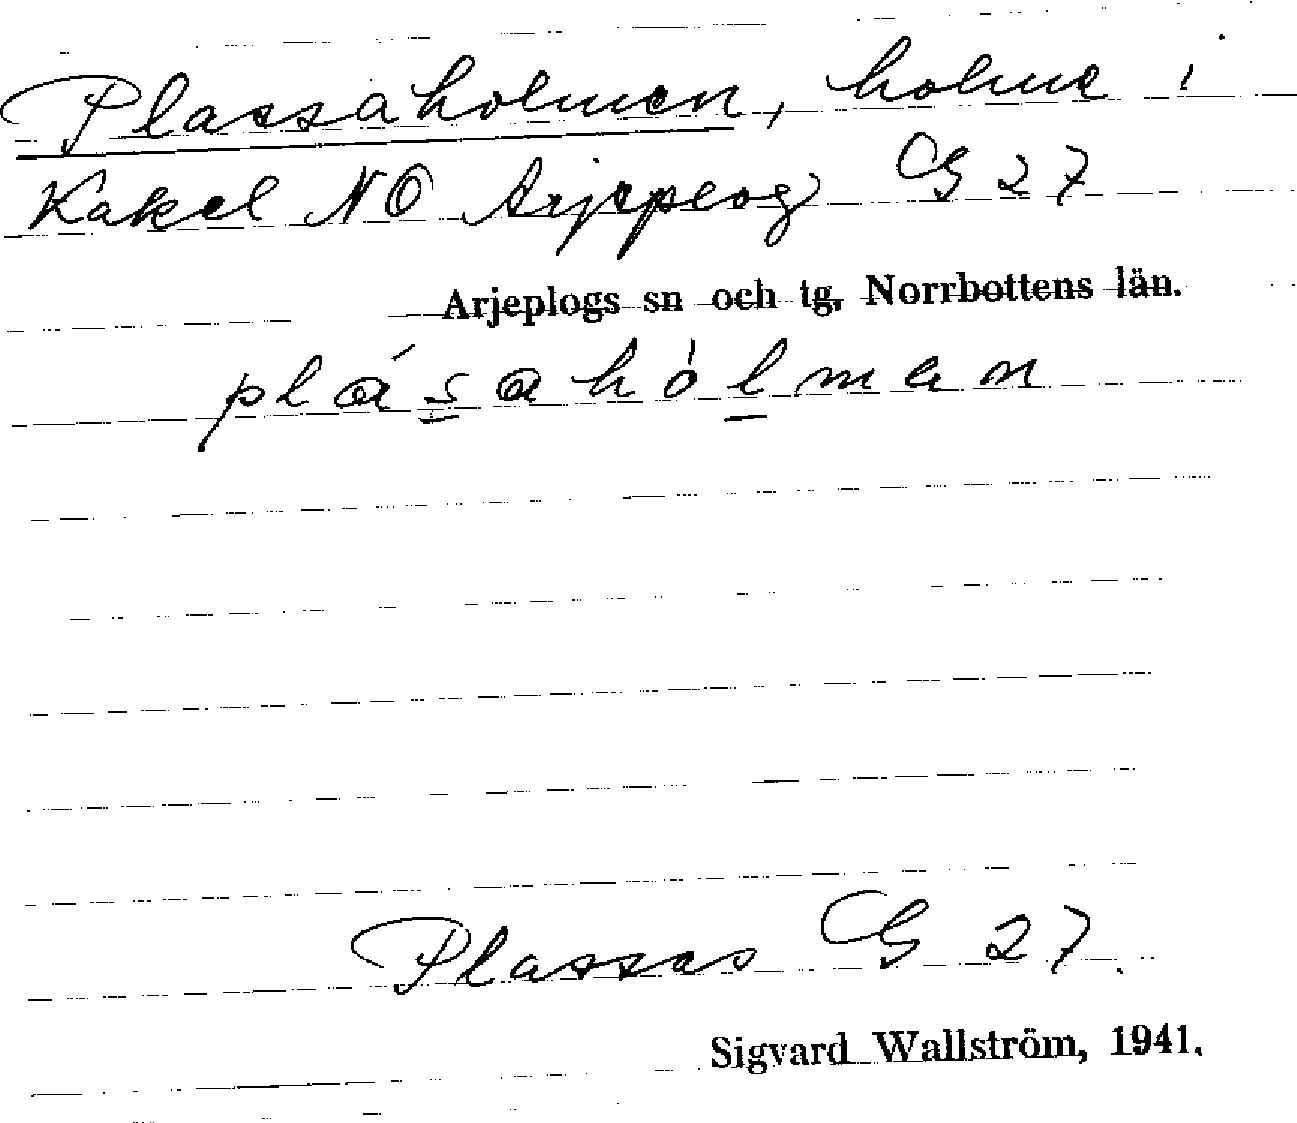 Plassaholmen, holme i
Kakel NO Arjeplog G 27
Arjeplogs sn och tg, Norrbottens län.
plásahólman
Plasses G 27
Sigvard Wallström, 1941.